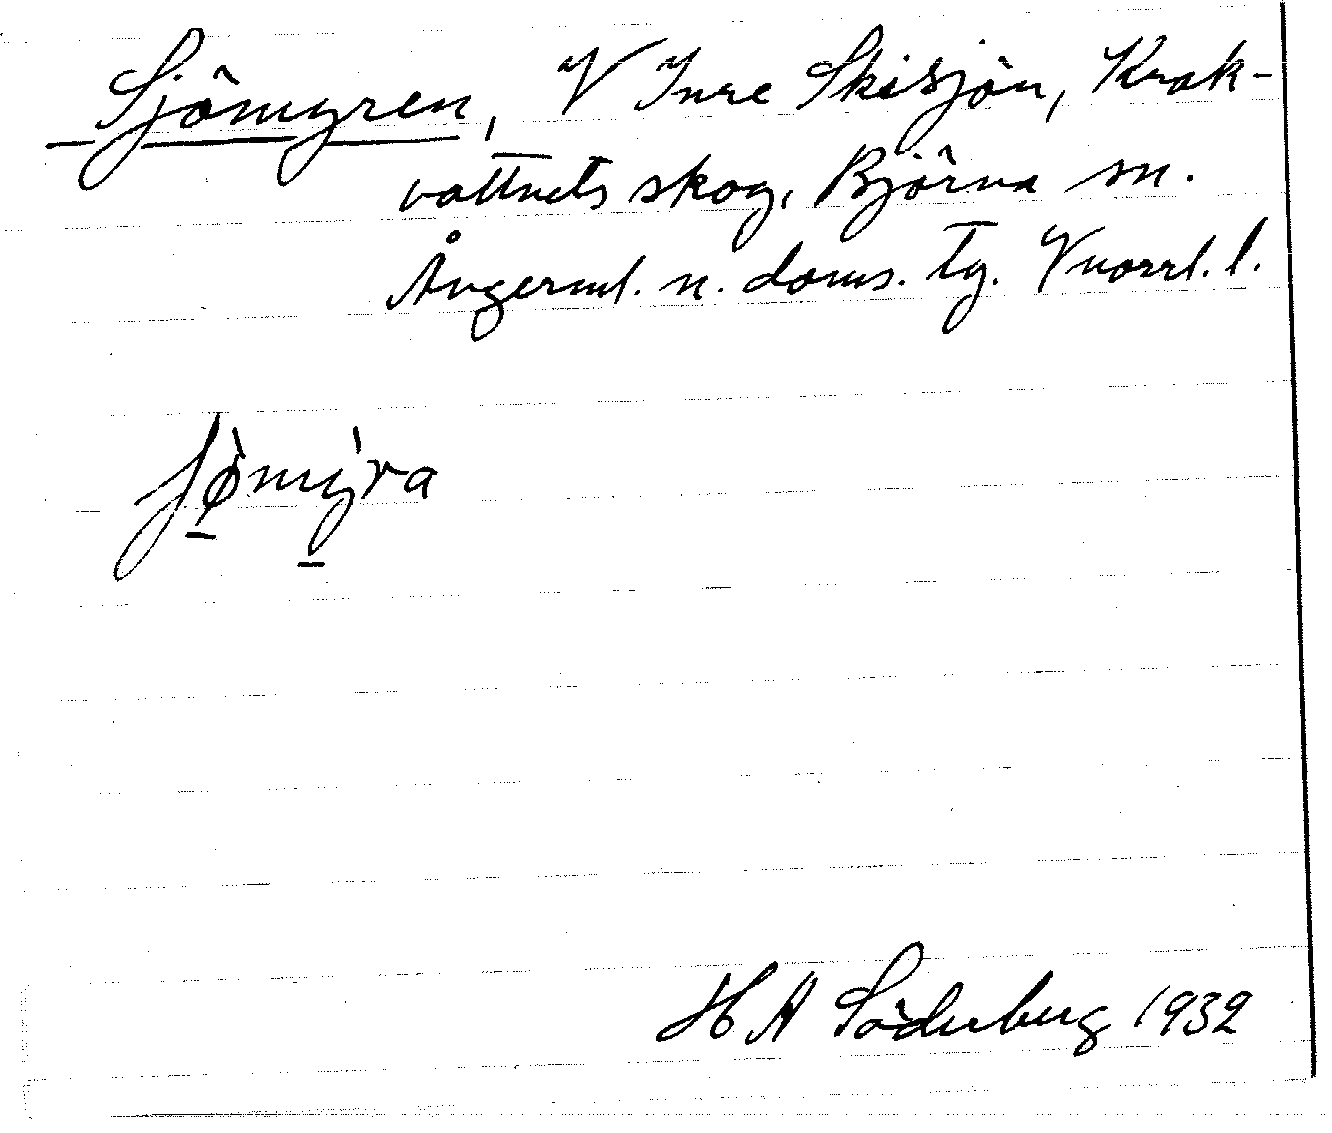 Sjömyren, V Inre Skisjön, Krak-
vattnets skog, Björna sn.
Ångerml. n. doms. tg. Vnorrl. l.
ʃø̱̀mỳ̱ra
H A Söderberg 1932